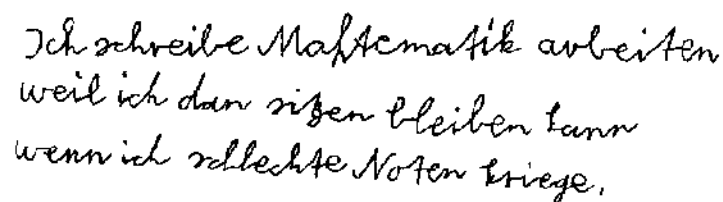 Ich schreibe Mahtematik arbeiten
weil ich dan sitzen bleiben kann
wenn ich schlechte Noten kriege.